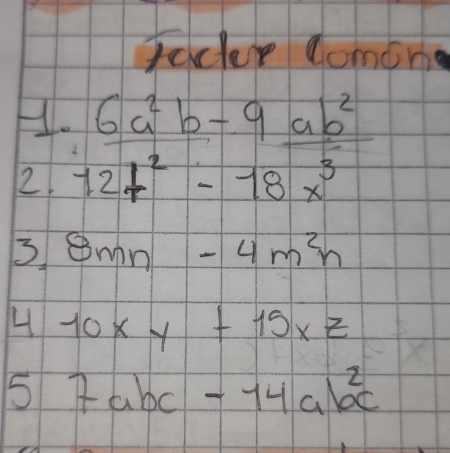 Factor Común
1. 6a²b - 9 ab²
2. 12t² - 18x³
3. 8mn - 4m²n
4 10xy + 15xz
5 7abc - 14ab²c